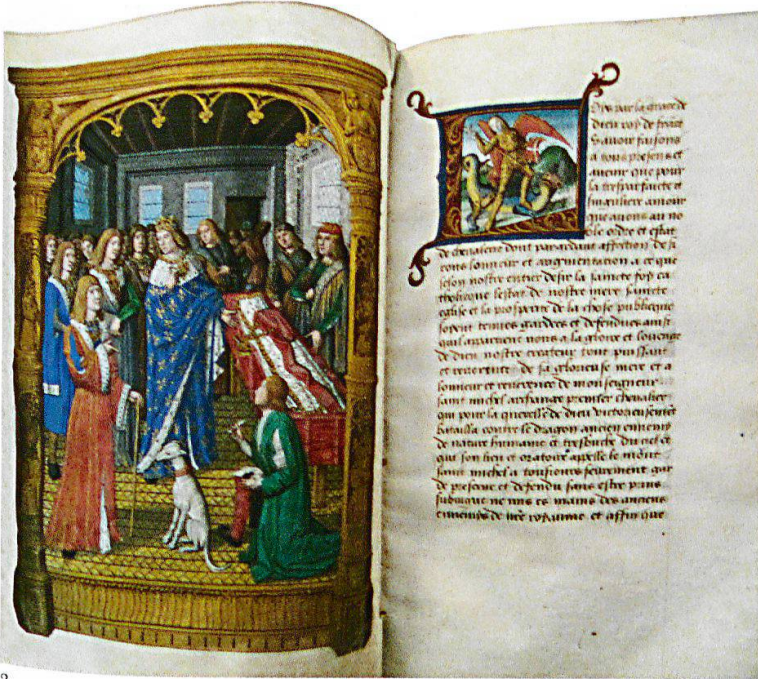 Oys par la grace de
dieu roy de france
Savoir faisons
a tous presens et
avenir que pour
la tresparfaicte et
singuliere amour
que avons au no
ble ordre et estat
de chevalerie dont par ardant affection desi
rons lonneur et augmentation a ce que
selon nostre entier desir la saincte foy ca
tholicque lestat de nostre mere saincte
eglise et la prosperite de la chose publicque
soyent tenues gardees et defendues ainsi
quil apartient nous a la gloire et louenge
de dieu nostre createur tout puissant
et reverence de sa glorieuse mere et a
lonneur et reverence de monseigneur
saint michel archange premier chevalier
qui pour la querelle de dieu
batailla contre le dragon ancien ennemy
de nature humaine et tresbucha du ciel et
qui son lieu et oratoire appelle le mont
saint michel a tousiours seurement gar
de preserve et defendu sans estre prins
subiugue ne mis es mains des anciens
ennemys de nre royaume et affin que